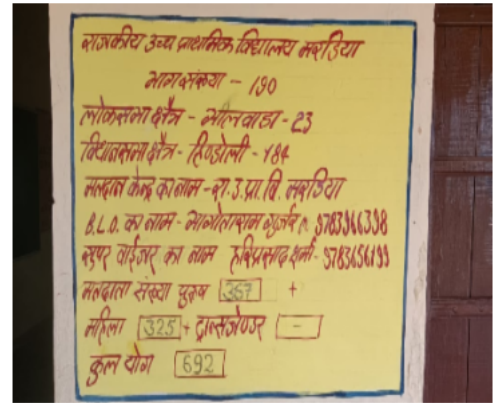 राजकीय उच्च प्राथमिक विद्यालय मरडिया
भाग संख्या - 190
लोकसभा क्षेत्र - भीलवाडा - 23
विधानसभा क्षेत्र - हिण्डोली - 184
मतदान केन्द्र का नाम - रा.उ.प्रा.वि. मरडिया
B.L.O. का नाम - भागोताराम गुर्जर 9783966398
सुपर वाईजर का नाम हरिप्रसाद शर्मा - 9783656199
मतदाता संख्या पुरुष 367 +
महिला 325 + ट्रान्सजेण्डर -
कुल योग 692